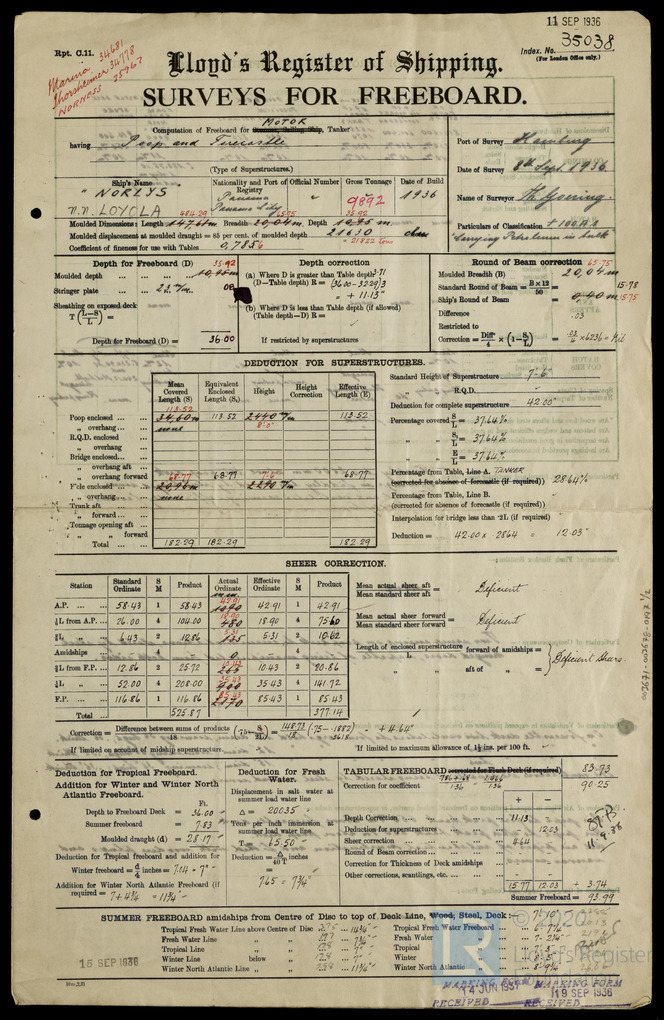 11 SEP 1936
Rpt. C.11.
Marina 34681
Thorsheimer 34778
NORNESS 35967
Index. No. 35038
(For London Office only.)
Lloyd's Register of Shipping.
SURVEYS FOR FREEBOARD.
MOTOR
Computation of Freeboard for Steamer, Sailing Ship, Tanker
having Poop and Forecastle
(Type of Superstructures.)
Port of Survey Hamburg
Date of Survey 8th Sept. 1936
Name of Surveyor
Particulars of Classification + 100 A1
Carrying Petroleum in bulk
Ship's Name Nationality and Port of Registry Official Number Gross Tonnage Date of Build
"NORLYS" Panama 9892 1936
M.V. LOYOLA Panama City
484.29 65.75 35.92
Moulded Dimensions: Length 147,61 m Breadth 20,04 m Depth 10,95 m
Moulded displacement at moulded draught = 85 per cent. of moulded depth 21630
= 21822 tons
Coefficient of fineness for use with Tables 0,7856
Depth for Freeboard (D) 35.92
Moulded depth 10,95 m
Stringer plate 22 m/m .08
Sheathing on exposed deck
T (L-S / L) =
Depth for Freeboard (D) = 36.00
Depth correction
(a) Where D is greater than Table depth
(D - Table depth) R = (36.00 - 32.29) 3
= + 11.13"
(b) Where D is less than Table depth (if allowed)
(Table depth - D) R =
If restricted by superstructures
Round of Beam correction 65.75
Moulded Breadth (B) 20,04 m
Standard Round of Beam = B × 12 / 50 = 15.78
Ship's Round of Beam = 0,40 m 15.75
Difference .03
Restricted to
Correction = Diff / 4 × (1 - S/L) = .03/4 × .6236 = Nil
DEDUCTION FOR SUPERSTRUCTURES.
Mean Covered Length (S) Equivalent Enclosed Length (S₁) Height Height Correction Effective Length (E)
113.52
Poop enclosed 34,60 m 113.52 2440 m/m 113.52
8'-0"
" overhang none
R.Q.D. enclosed
" overhang
Bridge enclosed
" overhang aft
" overhang forward 68.77 68.77 7'-6" 68.77
F'cle enclosed 20,96 m 2290 m/m
" overhang none
Trunk aft
" forward
Tonnage opening aft
" " forward
Total 182.29 182.29 182.29
Standard Height of Superstructure 7'-6"
" " R.Q.D.
Deduction for complete superstructure 42.00
Percentage covered S/L = 37.64%
" " S₁/L = 37.64%
" " E/L = 37.64%
Percentage from Table, Line A. TANKER
(corrected for absence of forecastle (if required)) 28.64%
Percentage from Table, Line B.
(corrected for absence of forecastle (if required))
Interpolation for bridge less than ·2L (if required)
Deduction = 42.00 × .2864 = 12.03"
SHEER CORRECTION.
Station Standard Ordinate S M Product Actual Ordinate Effective Ordinate S M Product
A.P. 58.43 1 58.43 42.91 1090 42.91 1 42.91
⅙L from A.P. 26.00 4 104.00 18.90 480 18.90 4 75.60
⅓L " 6.43 2 12.86 5.31 135 5.31 2 10.62
Amidships 4 0 4
⅓L from F.P. 12.86 2 25.72 10.43 265 10.43 2 20.86
⅙L " 52.00 4 208.00 35.43 900 35.43 4 141.72
F.P. 116.86 1 116.86 85.43 2170 85.43 1 85.43
Total 525.87 377.14
Mean actual sheer aft / Mean standard sheer aft = Deficient
Mean actual sheer forward / Mean standard sheer forward = Deficient
Length of enclosed superstructure / L forward of amidships =
" aft of " = } Deficient Sheer.
Correction = Difference between sums of products / 18 (·75 - S/2L) = 148.73 / 18 (.75 - .1882) = + 4.64"
.5618
If limited on account of midship superstructure.
If limited to maximum allowance of 1½ ins. per 100 ft.
Deduction for Tropical Freeboard.
Addition for Winter and Winter North Atlantic Freeboard.
Ft.
Depth to Freeboard Deck = 36.00
Summer freeboard = 7.83
Moulded draught (d) = 28.17
Deduction for Tropical freeboard and addition for
Winter freeboard = d/4 inches = 7.04 = 7"
Addition for Winter North Atlantic Freeboard (if required) = 7 + 4¾ = 11¾"
Deduction for Fresh Water.
Displacement in salt water at summer load water line
Δ = 20035
Tons per inch immersion at summer load water line
T = 65.50
Deduction = Δ / 40T inches
= 7.65 = 7¾"
TABULAR FREEBOARD corrected for Flush Deck (if required) 83.93
Correction for coefficient .7864+.68 / 1.36 1.466 / 1.36 90.25
+ -
Depth Correction 11.13
Deduction for superstructures 12.03
Sheer correction 4.64
Round of Beam correction
Correction for Thickness of Deck amidships
Other corrections, scantlings, etc.
15.77 12.03 + 3.74
Summer Freeboard = 93.99
11.9.36
SUMMER FREEBOARD amidships from Centre of Disc to top of Deck Line, Wood, Steel, Deck:— 7'-10"
Tropical Fresh Water Line above Centre of Disc 14¾" Tropical Fresh Water Freeboard 6'-7¼"
Fresh Water Line " " 7¾" Fresh Water " 7'-2¼"
Tropical Line " " 7" Tropical " 7'-3"
Winter Line below " 7" Winter " 8'-5"
Winter North Atlantic Line " " 11¾" Winter North Atlantic " 8'-9¾"
15 SEP 1936
© 2020
LR
Lloyd's Register
MARKING FORM
14 JUN 1937
RECEIVED
MARKING FORM
19 SEP 1936
RECEIVED
003671-003678-0197 1/2